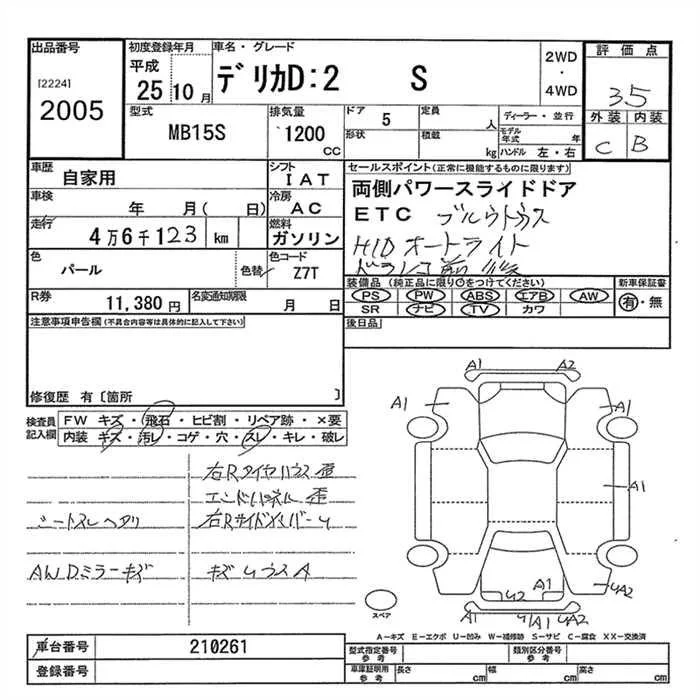 出品番号
[2224]
2005
初度登録年月
平成
25 10 月
車名・グレード
デリカD:2 S
2WD
・
4WD
評価点
3.5
外装 内装
C B
型式
MB15S
排気量
1200
CC
ドア
5
定員
人
形状
積載
kg
ディーラー・並行
モデル年式
年
ハンドル 左・右
車歴
自家用
シフト
IAT
車検
年 月( 日)
冷房
AC
走行
4万6千123 km
燃料
ガソリン
色
パール
色替
色コード
Z7T
R券
11,380 円
名変通知期限
月 日
セールスポイント(正常に機能するものに限ります)
両側パワースライドドア
ETC
HID オートライト
装備品 (純正品に限り○をつけてください)
新車保証書
PS PW ABS エアB AW
有・無
SR ナビ TV カワ
後日品
注意事項申告欄(不具合内容等は具体的に記入して下さい)
修復歴 有〔箇所 〕
検査員
記入欄
FW キズ・飛石・ヒビ割・リペア跡・×要
内装 キズ・汚レ・コゲ・穴・スレ・キレ・破レ
右Rタイヤハウス 歪
エンドパネル 歪
シートスレヘタリ
右RサイドメンバーU
AW Dミラーキズ
A1
A2
A1
A1
A1
U2
A1
UA2
A1
A1
UA2
スペア
A-キズ E-エクボ U-凹み W-補修跡 S-サビ C-腐食 XX-交換済
車台番号
210261
登録番号
型式指定番号
参考
類別区分番号
参考
車庫証明用
参考
長さ
cm
幅
cm
高さ
cm